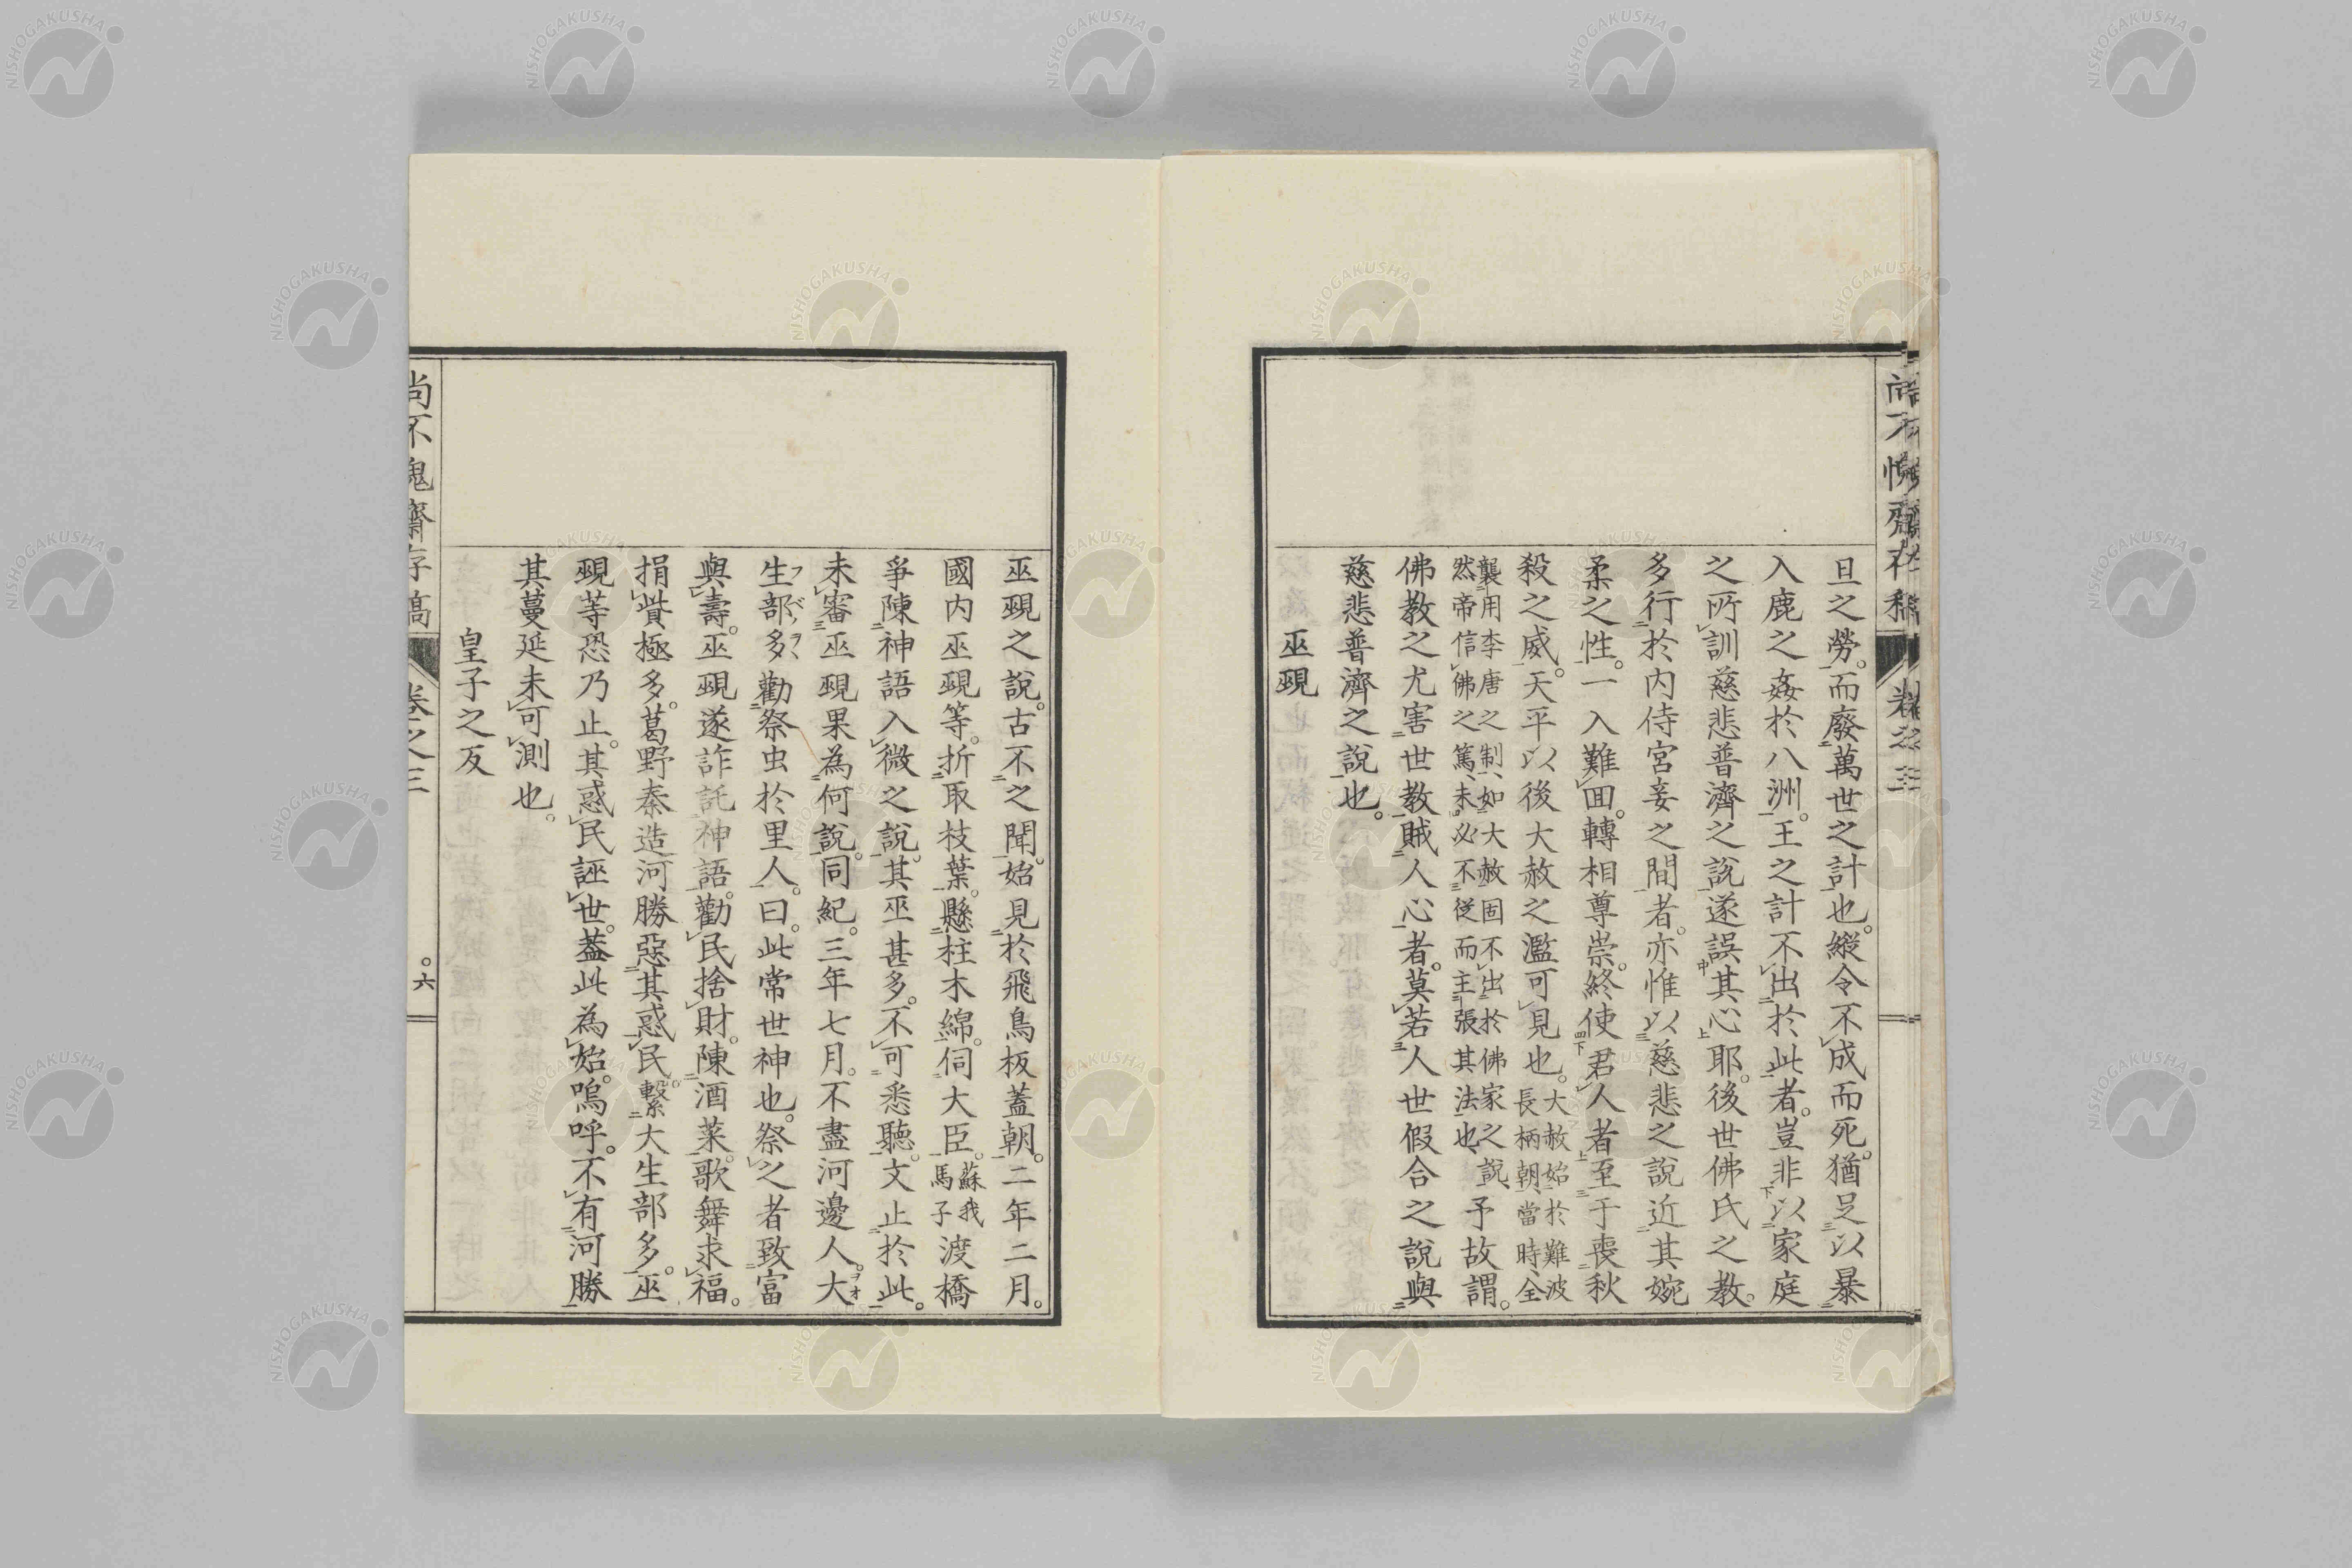 旦之勞。而廢萬世之計也。縱令不成而死。猶足以暴
入鹿之姦於八洲。王之計不出於此者。豈非以家庭
之所訓慈悲普濟之說遂誤其心耶。後世佛氏之教。
多行於内侍宮妾之間者。亦惟以慈悲之說近其婉
柔之性。一入難回。轉相尊崇。終使君人者至于喪秋
殺之威。天平以後大赦之濫可見也。大赦始於難波長柄朝、當時、全
襲用李唐之制、如大赦固不出於佛家之說、然帝信佛之篤、未必不從而主張其法也、予故謂。
佛教之尤害世教賊人心者。莫若人世假合之說與
慈悲普濟之說也。
巫覡
巫覡之說。古不之聞。始見於飛鳥板蓋朝。二年二月。
國内巫覡等。折取枝葉。懸柱木綿。伺大臣。蘇我馬子渡橋
爭陳神語入微之說。其巫甚多。不可悉聽。文止於此。
未審巫覡果為何說。同紀。三年七月。不盡河邊人。大
生部多、勸祭虫於里人。曰。此常世神也。祭之者致富
與壽。巫覡遂詐託神語。勸民捨財。陳酒菜。歌舞求福。
捐貲極多。葛野秦造河勝惡其惑民繫大生部多。巫
覡等恐乃止。其惑民誣世。葢此為始。嗚呼。不有河勝
其蔓延未可測也。
皇子之反
尚不愧齋存稿
卷之三
六